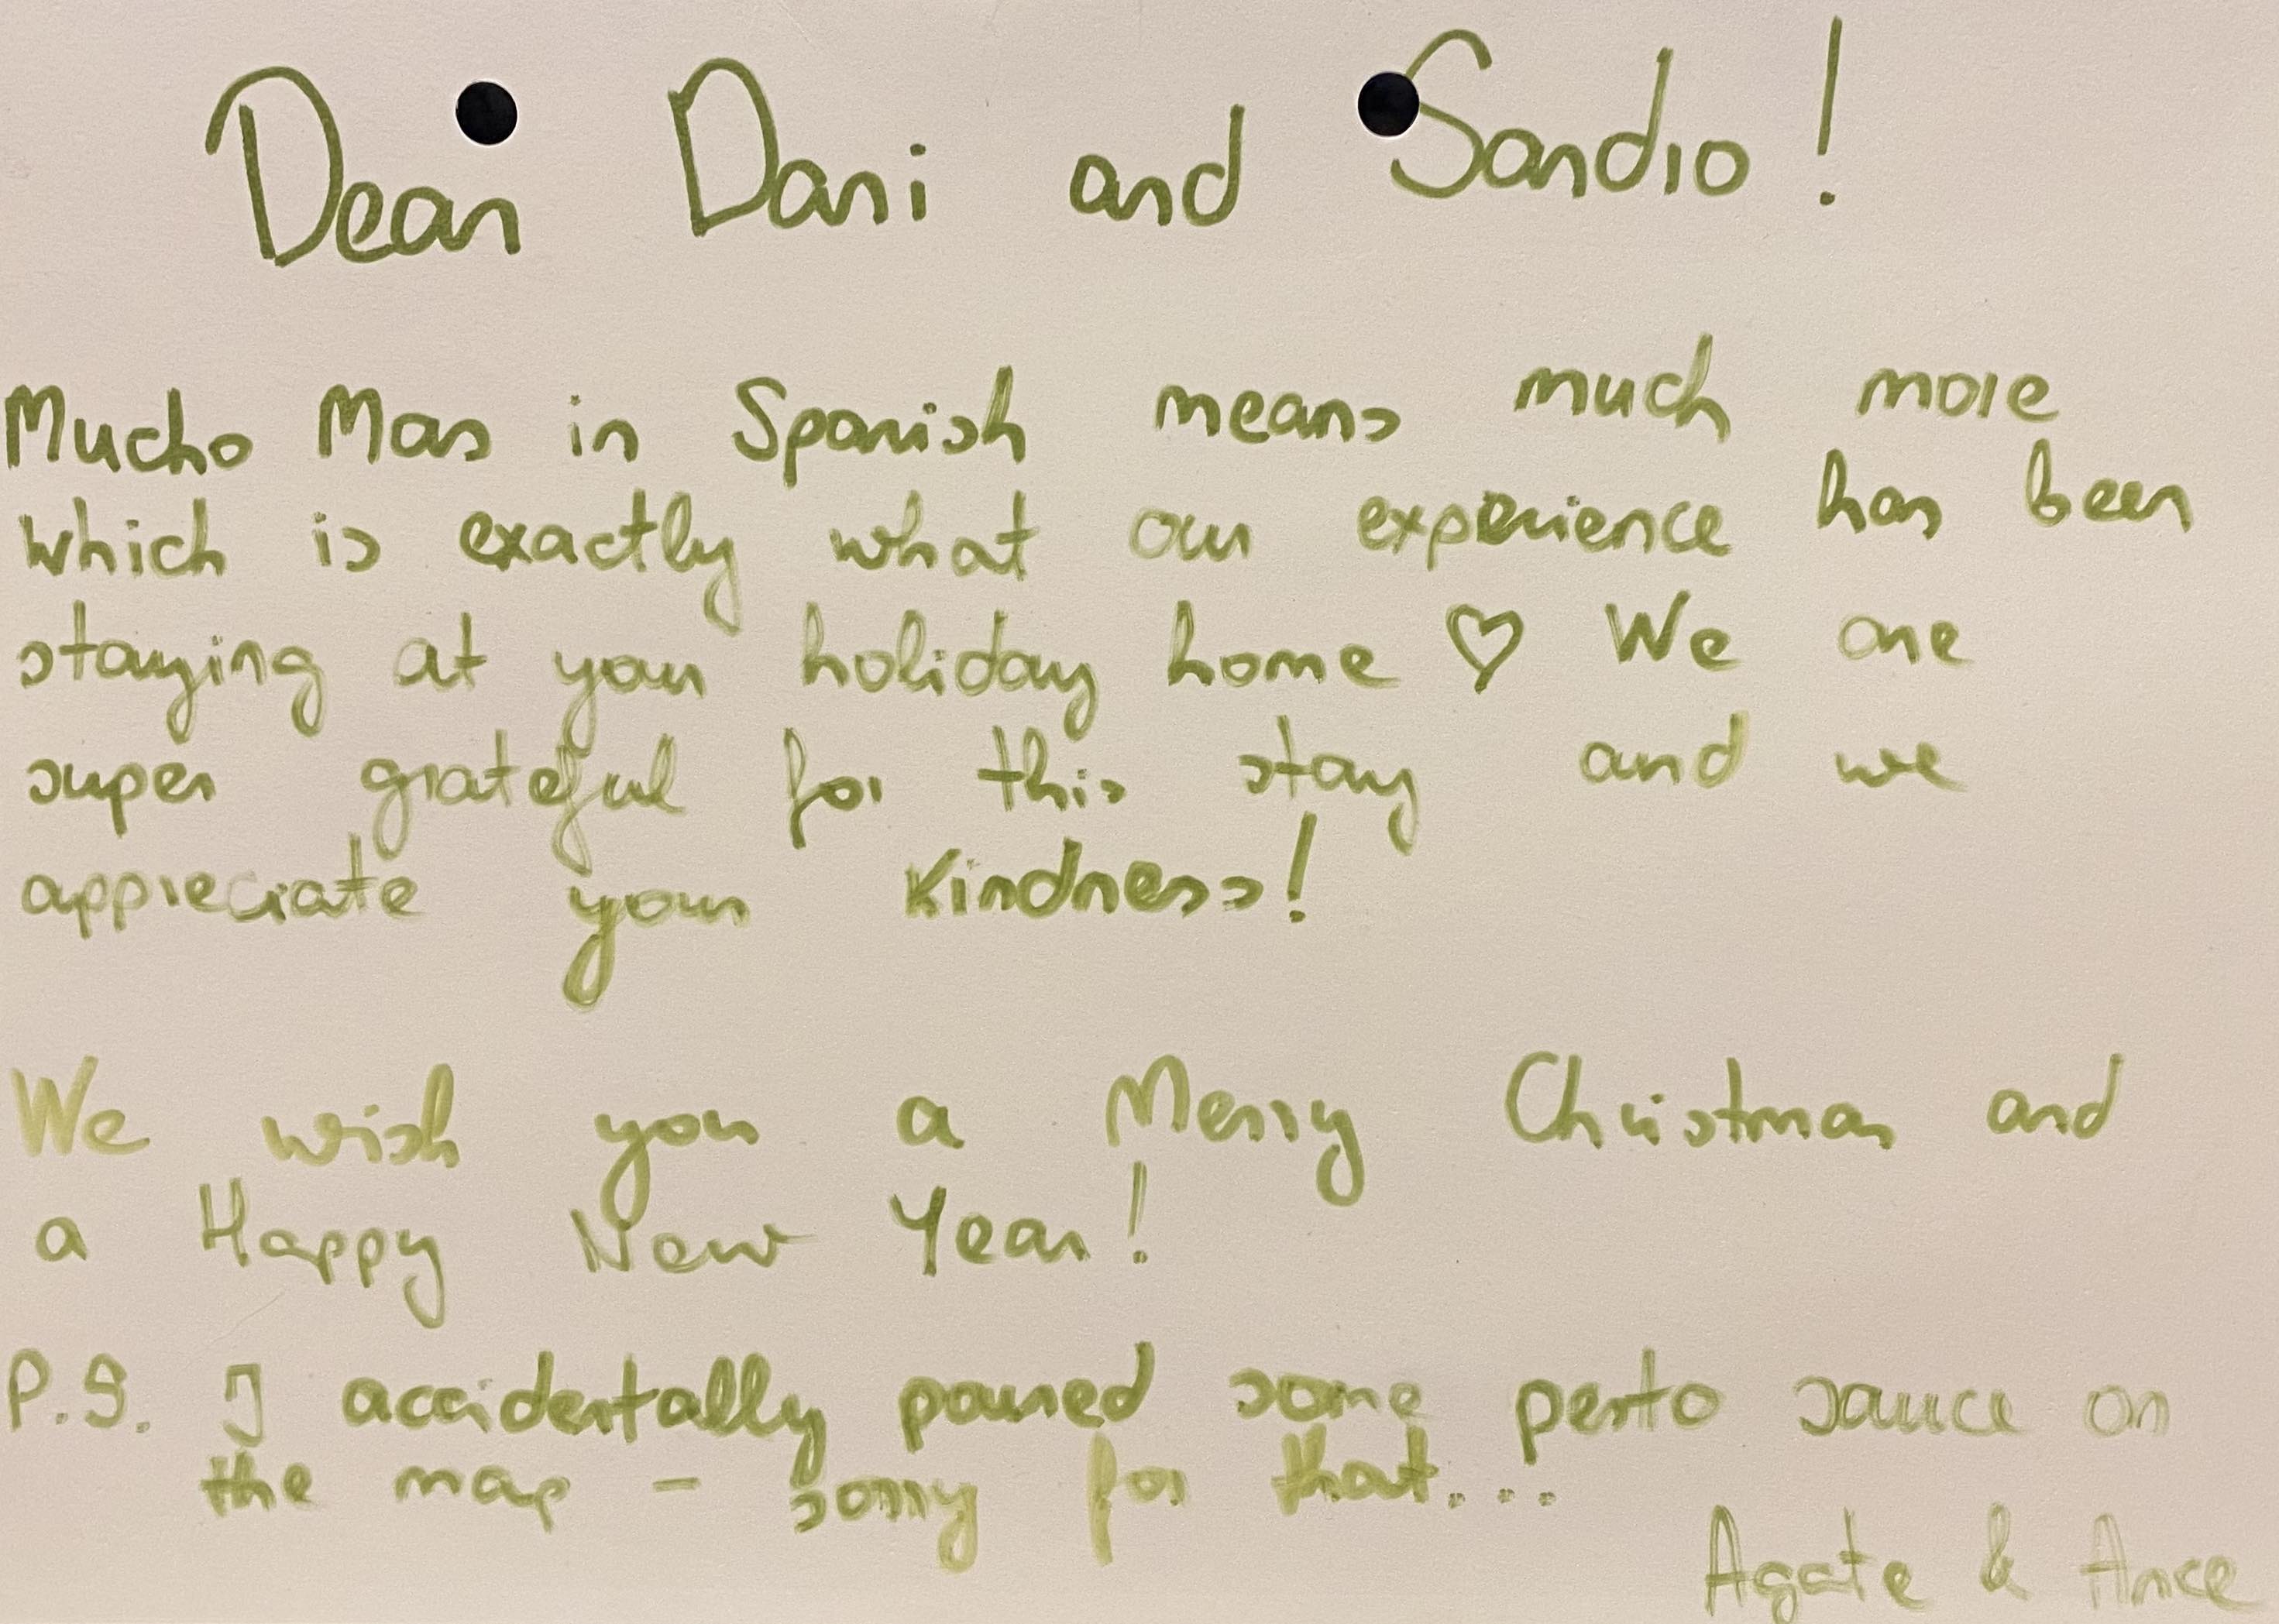 Dear Dani and Sandro!
Mucho Mas in Spanish means much more
which is exactly what our experience has been
staying at your holiday home ♡ We are
super grateful for this stay and we
appreciate your kindness!
We wish you a Merry Christmas and
a Happy New Year!
P.S. I accidentally poured some pesto sauce on
the map - sorry for that...
Agate & Ance